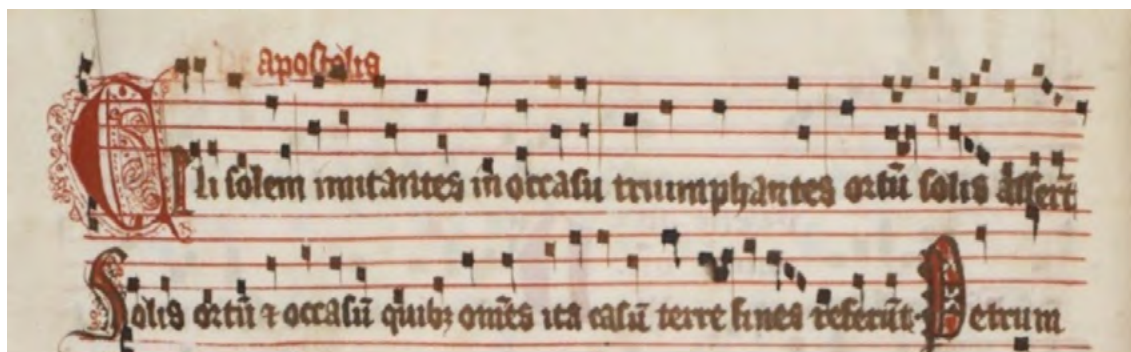 apostolis
Celi solem imitantes in occasu triumphantes ortū solis asserūt
Solis ortū ⁊ occasū quibꝫ om̄es ita casū terre fines referūt Petrum